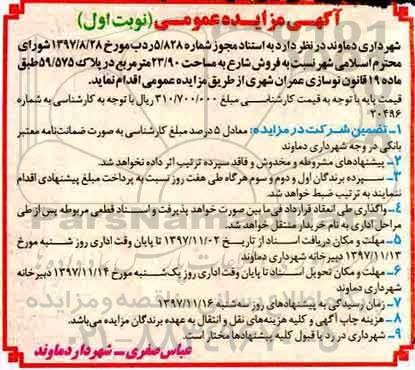 آگهی مزایده عمومی (نوبت اول)
شهرداری دماوند در نظر دارد به استناد مجوز شماره ۵/۸۲۸ر د ب مورخ ۱۳۹۷/۸/۲۸ شورای
محترم اسلامی شهر نسبت به فروش شارع به مساحت ۲۳/۹۰ مترمربع در پلاک ۵۹/۵۷۵ طبق
ماده ۱۹ قانون نوسازی عمران شهری از طریق مزایده عمومی اقدام نماید.
قیمت پایه با توجه به قیمت کارشناسی مبلغ ۳۱۰/۷۰۰/۰۰۰ ریال با توجه به کارشناسی به شماره
۲۰۴۹۶
۱ـ تضمین شرکت در مزایده: معادل ۵ درصد مبلغ کارشناسی به صورت ضمانت‌نامه معتبر
بانکی در وجه شهرداری دماوند
۲ـ پیشنهادهای مشروطه و مخدوش و فاقد سپرده ترتیب اثر داده نخواهد شد.
۳ـ سپرده برندگان اول و دوم و سوم هرگاه طی هفت روز نسبت به پرداخت مبلغ پیشنهادی اقدام
ننمایند به ترتیب ضبط خواهد شد.
۴ـ واگذاری طی انعقاد قرارداد فی‌مابین صورت خواهد پذیرفت و اسناد قطعی مربوطه پس از طی
مراحل اداری به نام خریدار منتقل خواهد شد.
۵ـ مهلت و مکان دریافت اسناد از تاریخ ۱۳۹۷/۱۱/۰۲ تا پایان وقت اداری روز شنبه مورخ
۱۳۹۷/۱۱/۱۳ دبیرخانه شهرداری دماوند
۶ـ مهلت و مکان تحویل اسناد تا پایان وقت اداری روز یک‌شنبه مورخ ۱۳۹۷/۱۱/۱۴ دبیرخانه
شهرداری دماوند
۷ـ زمان رسیدگی به پیشنهادهای روز سه‌شنبه ۱۳۹۷/۱۱/۱۶
۸ـ هزینه چاپ آگهی و کلیه هزینه‌های نقل و انتقال به عهده برندگان مزایده می‌باشد.
۹ـ شهرداری در رد یا قبول کلیه پیشنهادها مختار است.
عباس صفری ـ شهردار دماوند